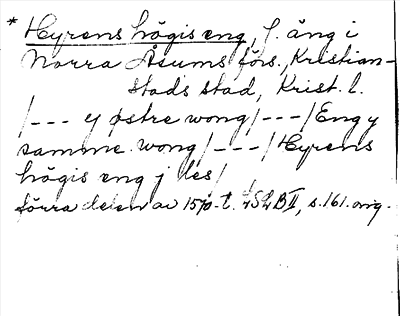 * Hyrens högis eng, f. äng i
Norra Åsums förs., Kristian-
stads stad, Krist. l.
/--- y østre wong/---/Eng y
samme wong/---/Hyrens
högis eng j les/
förra delen av 1510-t. LSLBII, s.161. orig.